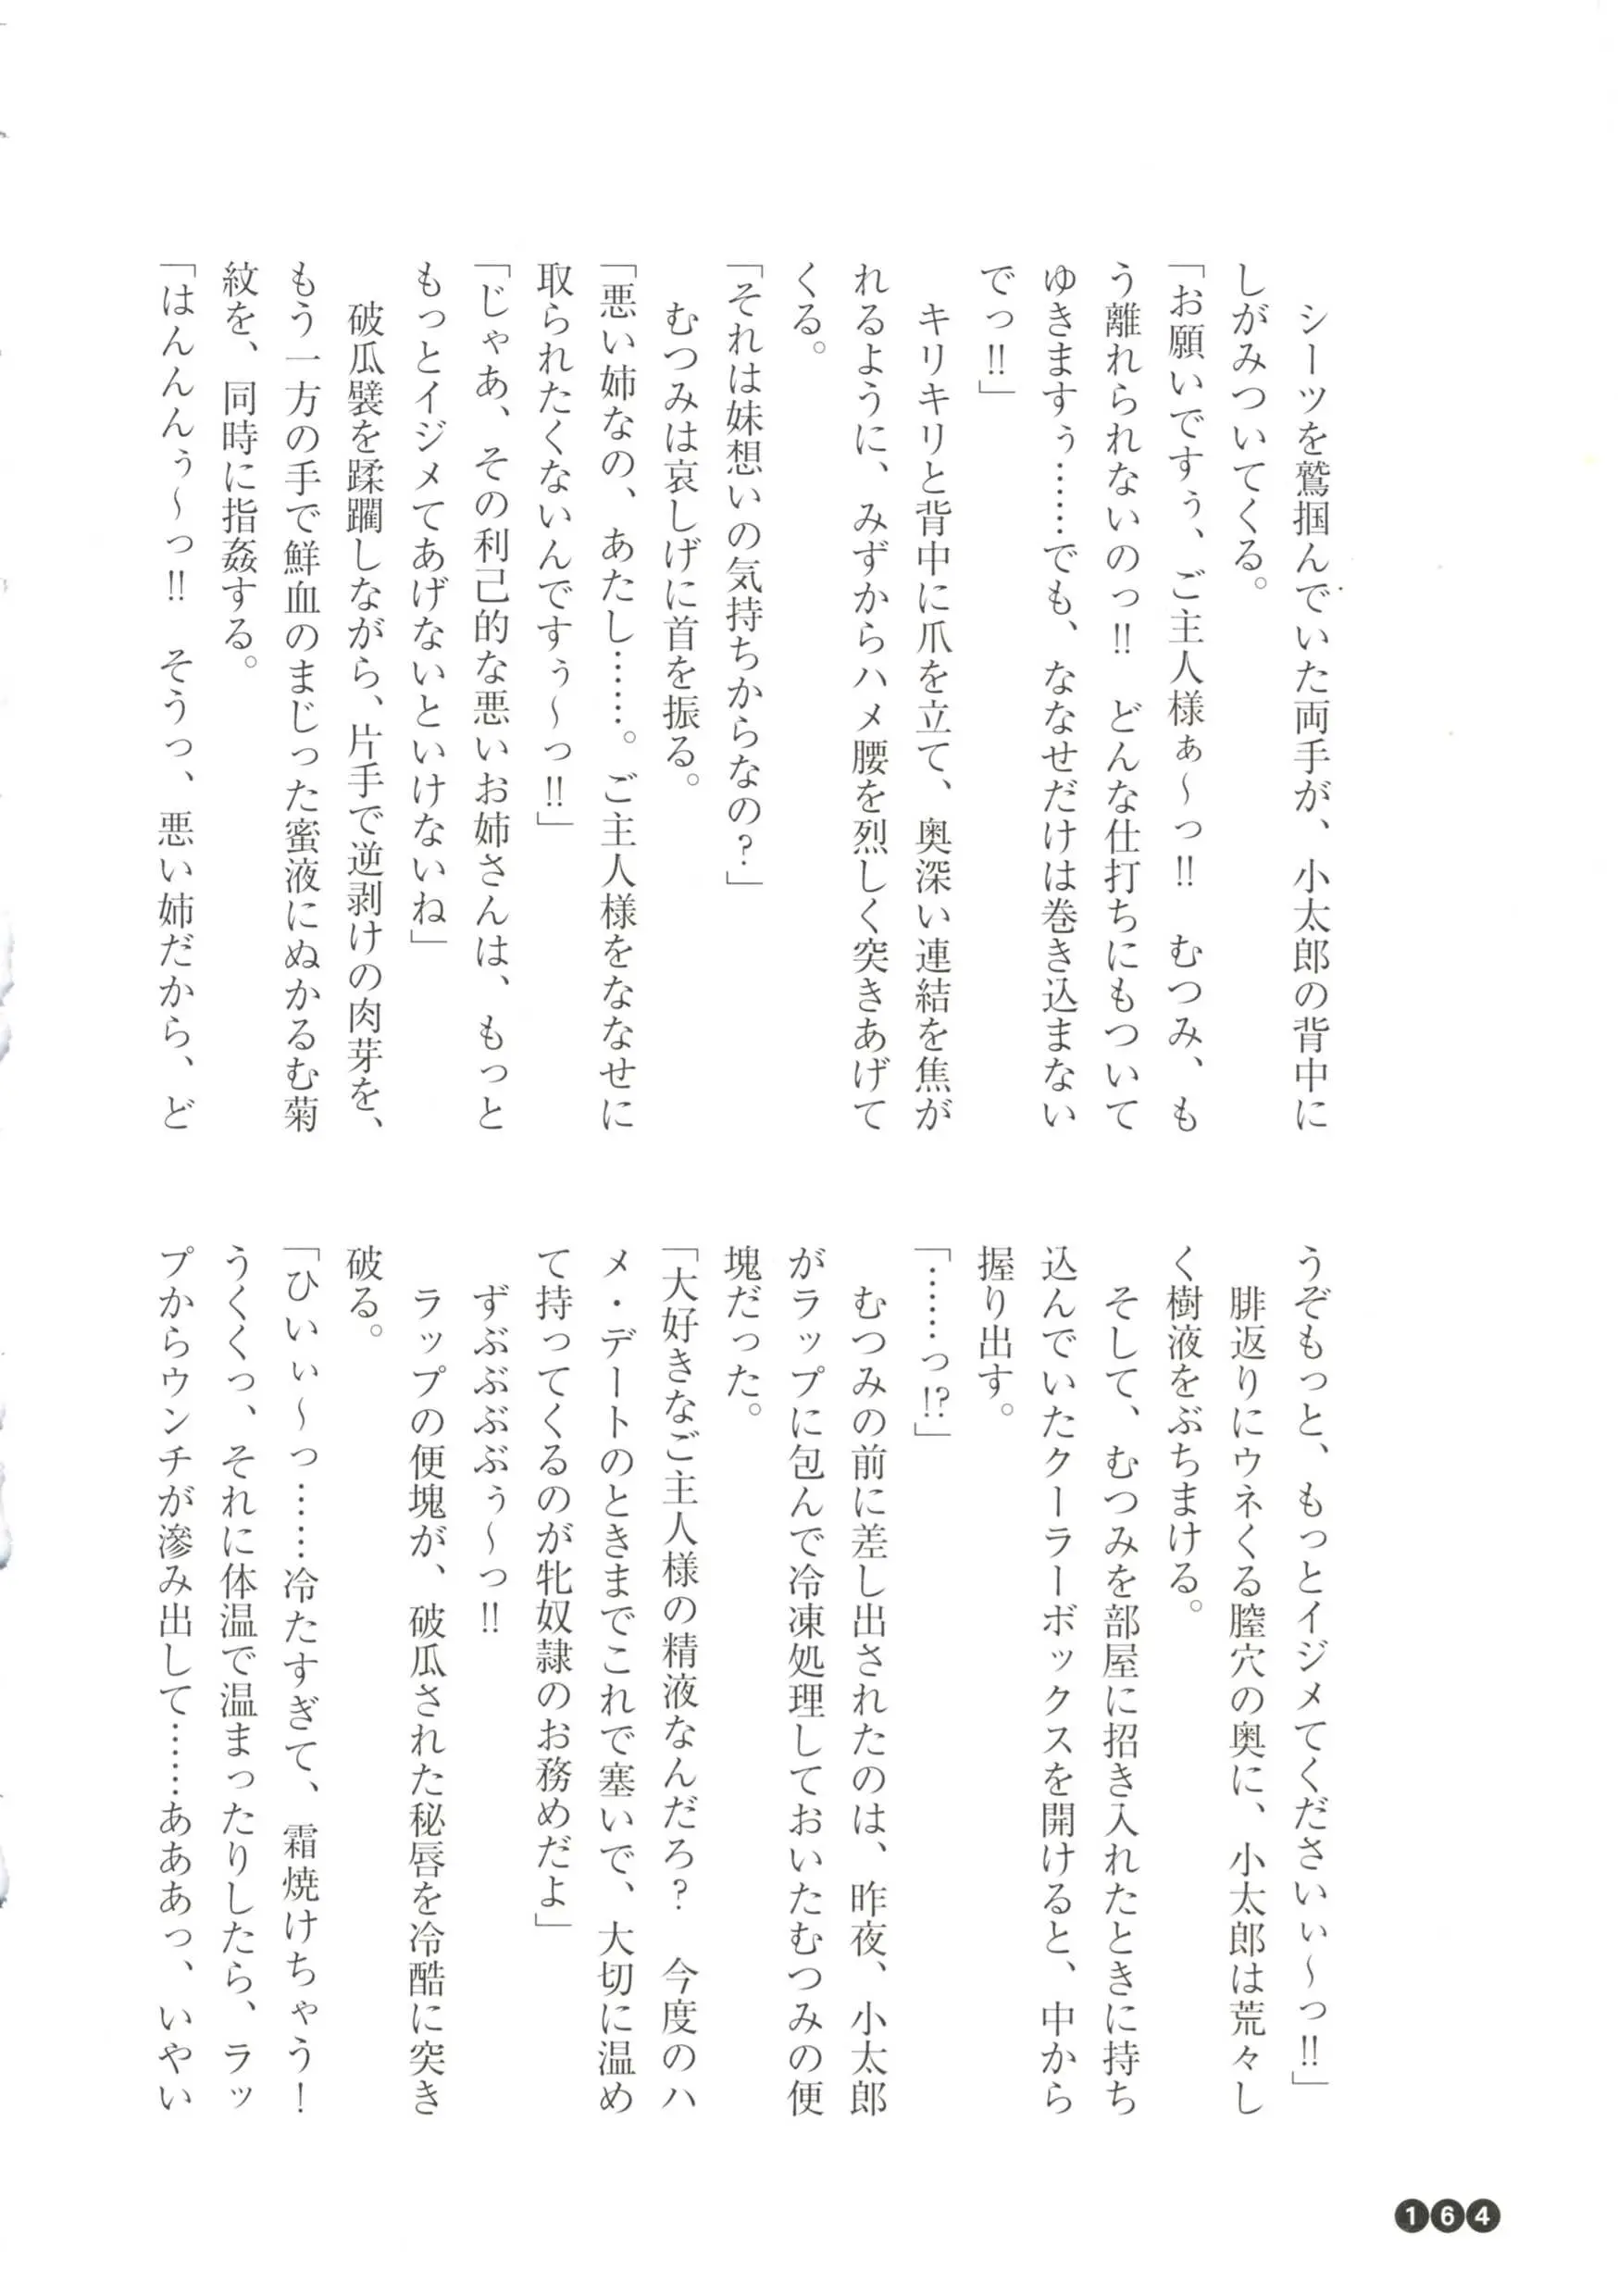 シーツを鷲掴んでいた両手が、小太郎の背中に
しがみついてくる。
「お願いですぅ、ご主人様ぁ～っ!!　むつみ、も
う離れられないのっ!!　どんな仕打ちにもついて
ゆきますぅ……でも、ななせだけは巻き込まない
でっ!!」
キリキリと背中に爪を立て、奥深い連結を焦が
れるように、みずからハメ腰を烈しく突きあげて
くる。
「それは妹想いの気持ちからなの？」
むつみは哀しげに首を振る。
「悪い姉なの、あたし……。ご主人様をななせに
取られたくないんですぅ～っ!!」
「じゃあ、その利己的な悪いお姉さんは、もっと
もっとイジメてあげないといけないね」
破瓜襞を蹂躙しながら、片手で逆剥けの肉芽を、
もう一方の手で鮮血のまじった蜜液にぬかるむ菊
紋を、同時に指姦する。
「はんんぅ～っ!!　そうっ、悪い姉だから、ど
うぞもっと、もっとイジメてくださいぃ～っ!!」
腓返りにウネくる膣穴の奥に、小太郎は荒々し
く樹液をぶちまける。
そして、むつみを部屋に招き入れたときに持ち
込んでいたクーラーボックスを開けると、中から
握り出す。
「……っ!?」
むつみの前に差し出されたのは、昨夜、小太郎
がラップに包んで冷凍処理しておいたむつみの便
塊だった。
「大好きなご主人様の精液なんだろ？　今度のハ
メ・デートのときまでこれで塞いで、大切に温め
て持ってくるのが牝奴隷のお務めだよ」
ずぶぶぶぶぅ～っ!!
ラップの便塊が、破瓜された秘唇を冷酷に突き
破る。
「ひいぃ～っ……冷たすぎて、霜焼けちゃう！
うくくっ、それに体温で温まったりしたら、ラッ
プからウンチが滲み出して……あああっ、いやい
164